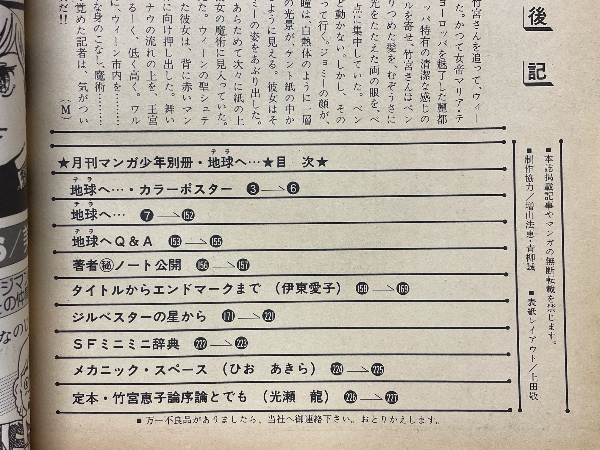 後記
竹宮さんを追って、ウィー
た。かつて女帝マリア・テ
ヨーロッパを魅了した麗都
ッパ特有の清潔な感じの
ルを寄せ、竹宮さんはペン
りつめた髪を、むぞうさに
光をたたえた両の眼を、ペ
点に集中していた。ペン
ど動かない。しかし、その
って行く。ジョミーの顔が、
瞳は、白熱体のように一層
の光景が、ケント紙の中か
ように見える。彼女はそ
ミーの姿をあぶり出した。
あらためて次々に紙の上
女の魔術に見入っていた。
た。ウィーンの聖シュテ
た彼女は、背に赤いマン
に向け押し出した。舞い
ナウの流れの上を、王宮
るーく、低く高く。ワル
に、ウィーン市内を……
な身のこなし、魔術……
覚めた記者は、気がつい
だ!!
(M)
■本誌掲載記事やマンガの無断転載を禁じます。
■制作協力/増山法恵・青柳誠
■表紙レイアウト/上田敬
★月刊マンガ少年別冊・地球へ…★目 次★
テラ
地球へ…・カラーポスター ③→⑥
テラ
地球へ… ⑦→152
テラ
地球へQ&A 153→155
著者㊙ノート公開 156→157
タイトルからエンドマークまで (伊東愛子) 158→169
ジルベスターの星から 171→221
SFミニミニ辞典 222→223
メカニック・スペース (ひお あきら) 224→225
定本・竹宮恵子論序論とでも (光瀬 龍) 226→227
■万一不良品がありましたら、当社へ御連絡下さい。おとりかえします。